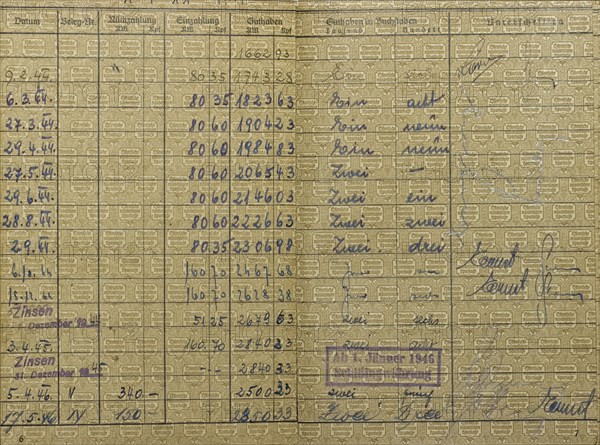 Datum Beleg-Nr. Rückzahlung Einzahlung Guthaben Guthaben in Buchstaben Unterschriften
RM Rpf RM Rpf RM Rpf Tausend Hundert
1662 93
9.2.44. 80 35 1743 28 Ein
6.3.44. 80 35 1823 63 Ein acht
27.3.44. 80 60 1904 23 Ein neun
29.4.44. 80 60 1984 83 Ein neun
27.5.44. 80 60 2065 43 Zwei —
29.6.44. 80 60 2146 03 Zwei ein
28.8.44. 80 60 2226 63 Zwei zwei
2.9.44. 80 35 2306 98 Zwei drei
160 70 2467 68
160 70 2628 38
Zinsen
Dezember 1944 51 25 2679 63 zwei sechs
3.4.45. 160.70 2840 33 zwei acht
Zinsen
31. Dezember 1945 -- 2840 33
Ab 1. Jänner 1946
Schillingwährung
5.4.46. V 340 - 2500 33 zwei fünf
17.5.46 IV 150 2350 33 Zwei
6 7